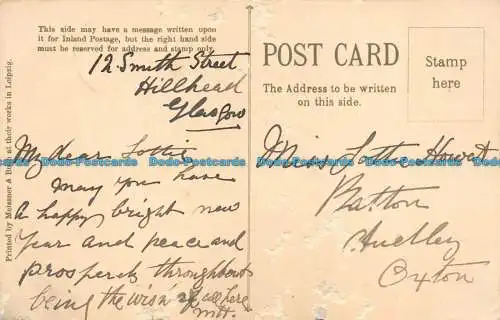 This side may have a message written upon
it for Inland Postage, but the right hand side
must be reserved for address and stamp only.
12 Smith Street
Hillhead
Glasgow
My dear Lottie
May you have
a happy bright new
Year and peace and
prosperity throughout
being the wish of all here
MH.
Printed by Meissner & Buch at their works in Leipzig.
POST CARD
The Address to be written
on this side.
Stamp
here
Miss Lottie Howett
Batton
Oxton
Dodo-Postcards